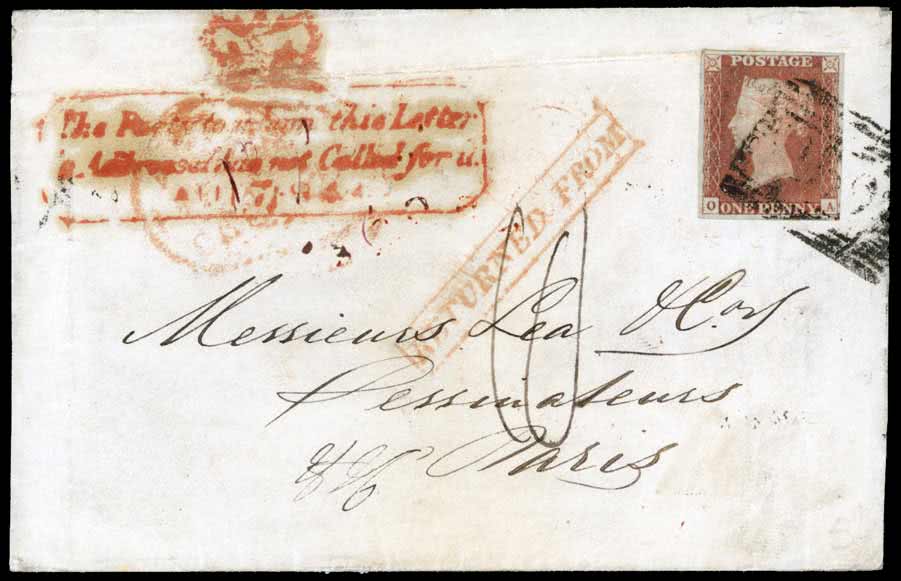 The Party to whom this Letter
is Addressed has not Called for it.
RETURNED FROM
POSTAGE
ONE PENNY
O A
Messieurs Lea & Co
Dessinateurs
Paris